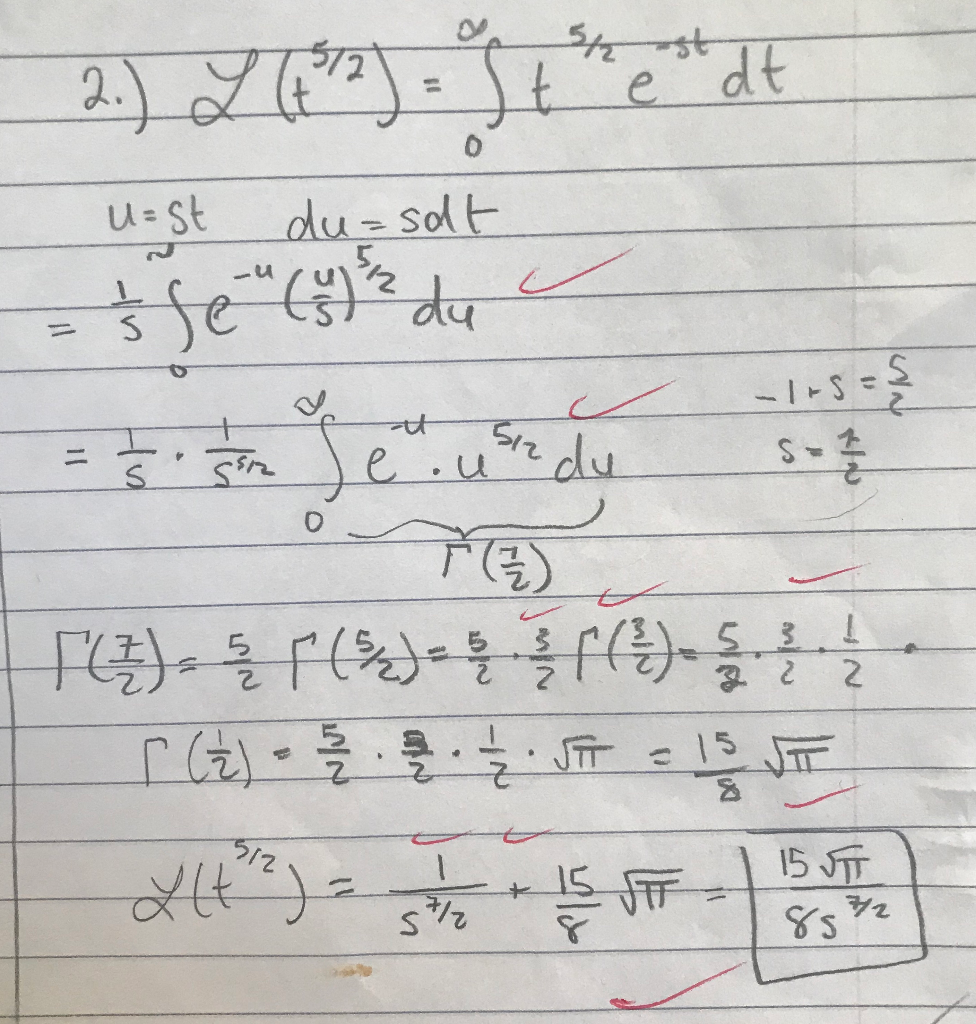 2.) ℒ(t^{5/2}) = ∫_0^∞ t^{5/2} e^{-st} dt
u = st   du = sdt
= 1/s ∫_0^∞ e^{-u} (u/s)^{5/2} du
-1 + s = 5/2
= 1/s · 1/s^{5/2} ∫_0^∞ e^{-u} · u^{5/2} du
s = 7/2
Γ(7/2)
Γ(7/2) = 5/2 Γ(5/2) = 5/2 · 3/2 Γ(3/2) = 5/2 · 3/2 · 1/2 ·
Γ(1/2) = 5/2 · 3/2 · 1/2 · √π = 15/8 √π
ℒ(t^{5/2}) = 1/s^{7/2} + 15/8 √π = 15√π/8s^{7/2}